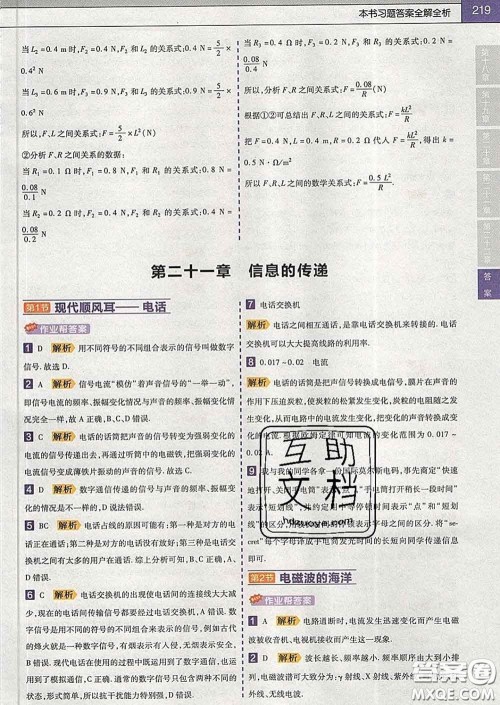 本书习题答案全解全析 219
当 L₂=0.4 m 时,F₂=0.4 N,F₂ 和 L₂ 的关系式:0.4=5/2×
0.4² N
当 L₃=0.6 m 时,F₃=0.9 N,F₃ 和 L₃ 的关系式:0.9=5/2×
0.6² N
所以,F、L 之间关系式:F=5/2×L²(N)
②分析 F、R 之间关系的数据:
当 R₁=0.1 Ω 时,F₁=0.8 N,F₁ 和 R₁ 的关系式:0.8=
0.08/0.1 N
当 R₂=0.2 Ω 时,F₂=0.4 N,F₂ 和 R₂ 的关系式:0.4=
0.08/0.2 N
当 R₃=0.4 Ω 时,F₃=0.2 N,F₃ 和 R₃ 的关系式:0.2=
0.08/0.4 N
所以,分析 F、R 之间关系式:F=0.08/R(N)
根据①②可总结出 F、L、R 之间的关系式:F=kL²/R
把 F=0.4 N,L=0.4 m,R=0.2 Ω 代入 F=kL²/R,得 k=
0.5 N·Ω/m²
所以 F、R、L 之间的数学关系式:F=0.5L²/R
第十八章
第十九章
第二十章
第二十一章
第二十二章
答案
第二十一章 信息的传递
第1节 现代顺风耳——电话
作业帮答案
1 D 解析 用不同符号的不同组合表示的信号叫做数字
信号。故选 D.
2 A 解析 信号电流“模仿”着声音信号的“一举一动”,
即信号电流的频率、振幅变化情况与声音的频率、振幅变化
情况完全一样,故 A 正确,B、C、D 错误.
3 C 解析 电话的话筒把声信号转变为强弱变化的电
流信号传递出去,再通过听筒中的电磁铁,把强弱变化的电
流信号变成薄铁片振动的声音信号.故选 C.
4 D 解析 数字通信传递的信号与声音的频率、振幅变
化的情况是不一样的,故 D 错误.
5 BC 解析 电话占线的原因可能有:第一种是对方的电
话正在通话;第二种是对方的电话没有放好;第三种是电话
交换机之间有人在通话.综上分析可知,B、C 正确,A、D
错误.
6 C 解析 电话交换机的出现使电话间的连接线大大减
少,现在的电话间传输信号都要经过电话交换机,A 错误.
数字信号是用不同符号的不同组合来表示的信号,如古代
的烽火就是一种数字信号,有烽火表示有人入侵,无烽火表
示无人入侵,现在的电话机既运用到了数字通信,又运用到
了模拟通信,B、D 错误.数字信号只包含两种不同的
状态,形式简单,所以抗干扰能力特别强,C 正确.
7 电话交换机
解析 电话之间相互通话,是靠电话交换机来转接的,电话
交换机可以大大提高线路的利用率.
8 0.017~0.02 电流
解析 电话的话筒是把声信号转换成电信号,膜片在声音的
作用下压迫炭粒,使炭粒的松紧发生变化,炭粒的电阻随之发
生变化,从而电路中的电流也发生变化,将声音的变化转换成
电流的变化.根据欧姆定律可知电流的变化范围为 0.017~
0.02 A.
9 我与我的同学各拿一份国际莫尔斯电码,并约定“快速
地打开、关闭手电筒”表示“点”,“手电筒打开稍长一段时间”
表示“短划线”,并约定用中等停顿时间表示“点”和“短划
线”的区分,
cret”每个字母译成手电筒发光时间的长短向同学传递信息
即可.
第2节 电磁波的海洋
作业帮答案
1 A 解析 电路通断时,电流发生迅速变化而产生电磁
波被收音机、电视机接收而产生这一现象.
2 D 解析 波长越长,频率越小,电磁波按频率由大到小排
互助
文档
hdzuoye.com
答案圈
MXQE.COM